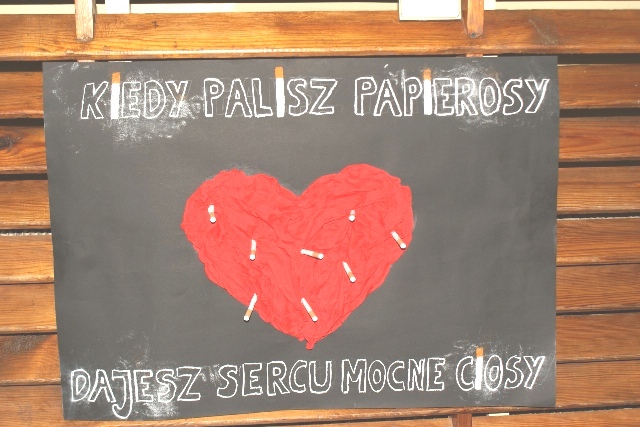 KIEDY PALISZ PAPIEROSY
DAJESZ SERCU MOCNE CIOSY